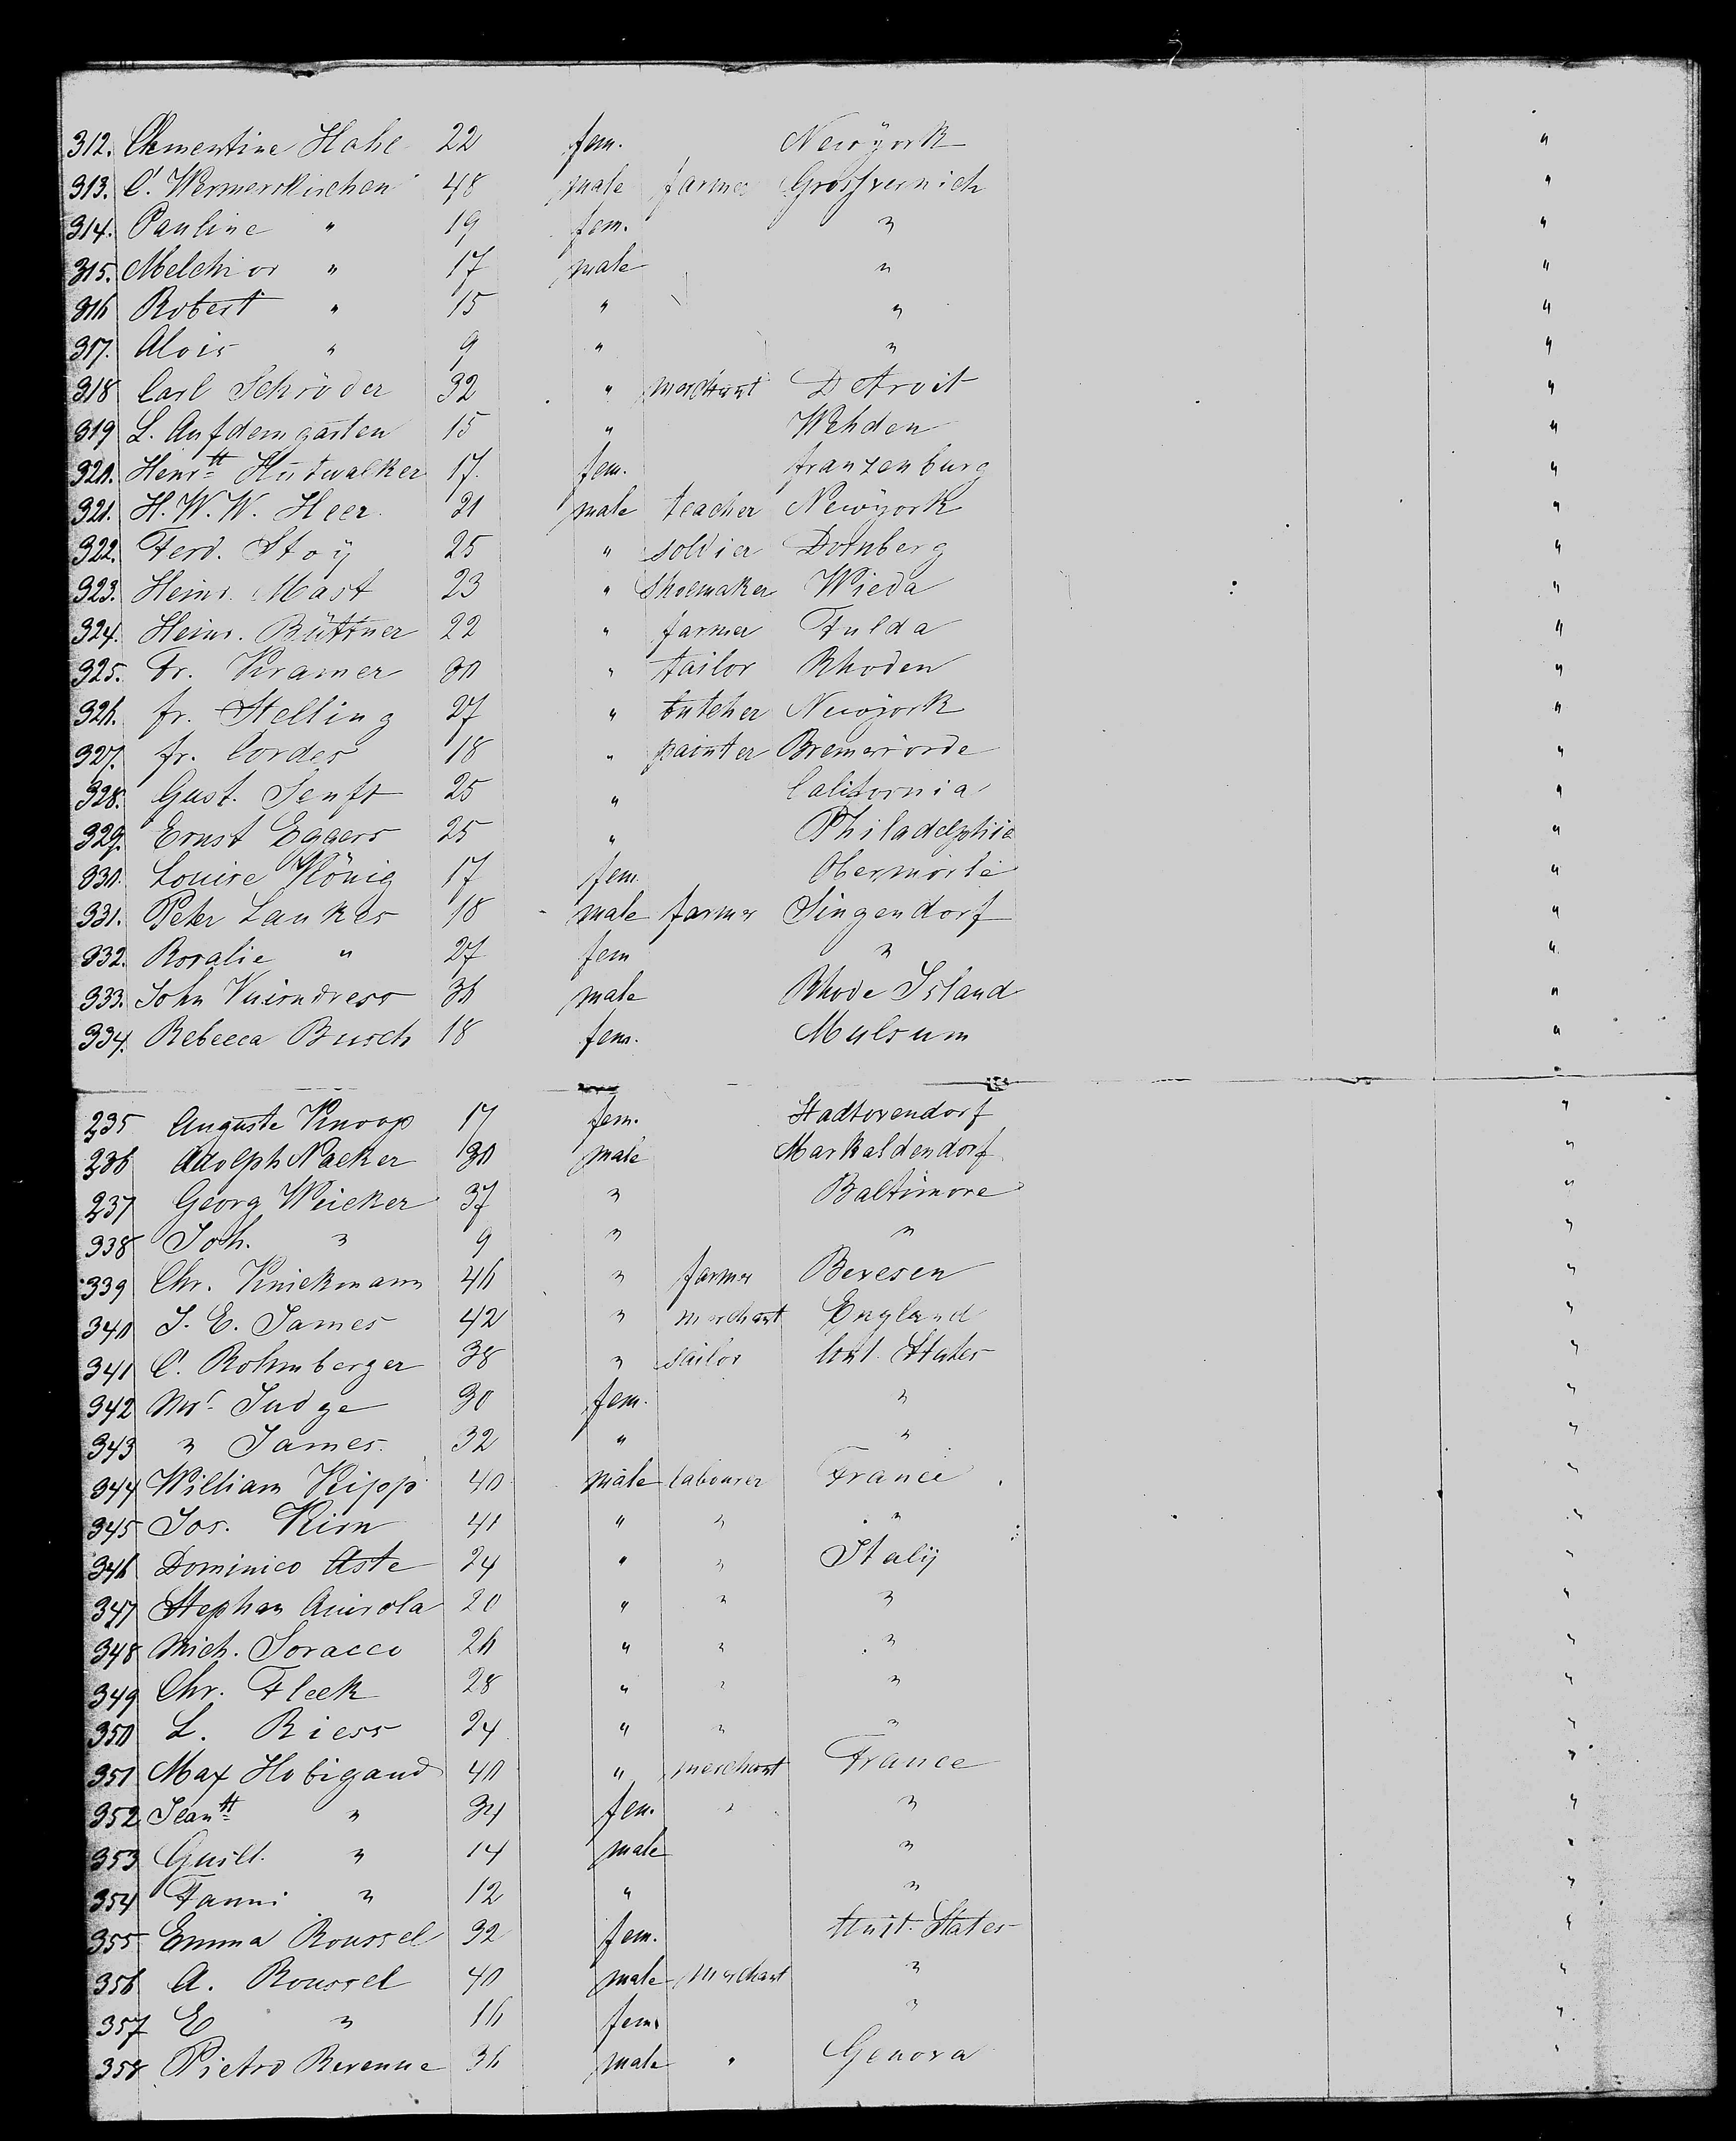 312. Clementine Hahe 22 fem. Newÿork "
313. C. Wermerskirchen 48 male farmer Grossvernich "
314. Pauline " 19 fem. " "
315. Melchior " 17 male " "
316 Robert " 15 " " "
317. Alois " 9 " " "
318 Carl Schröder 32 " merchant Detroit "
319 L. Aufdemgarten 15 " Wehden "
320. Henrtt Hütwalker 17. fem. franzenburg "
321. H. W. W. Heer. 21 male teacher Newÿork "
322. Ferd. Stoÿ 25 " soldier Dornberg "
323. Heinr. Mast 23 " Shoemaker Wieda "
324. Heinr. Büttner 22 " farmer Fulda "
325. Fr. Kramer 30 " tailor Rhoden "
326. fr. Stelling 27 " butcher Newÿork "
327. fr. Cordes 18 " painter Bremervorde "
328. Gust. Senft 25 " California "
329. Ernst Eggers 25 " Philadelphia "
330. Louise König 17 fem. Obermörle "
331. Peter Laukes 18 male farmer Singendorf "
332. Rosalie " 27 fem " "
333. John 36 male Rhode Island "
334. Rebecca Busch 18 fem. Mulsum "
235 Auguste Knoop 17 fem. Stadtoxendorf "
236 Adolph Nacker 30 male Markoldendorf "
237 Georg Weicker 37 " Baltimore "
338 Joh. " 9 " " "
339 Chr. Knickmann 46 " farmer Bevesen "
340 J. E. James 42 " merchant England "
341 C. Rohmberger 38 " sailor Unt. States "
342 Mrs Judge 30 fem. " "
343 " James. 32 " " "
344 William Kipp 40 male labourer France "
345 Jos. Kirn 41 " " " "
346 Dominico Aste 24 " " Italÿ "
347 Stephan Auirola 20 " " " "
348 Mich. Soracco 26 " " " "
349 Chr. Fleek 28 " " " "
350 L. Riess 24 " " " "
351 Max Hobigand 40 " merchant France "
352 Jeantt " 34 fem. " " "
353 Guill. " 14 male " "
354 Fanni " 12 " " "
355 Emma Roussel 32 fem. Unit. States "
356 A. Roussel 40 male merchant " "
357 E " 16 fem. " "
358 Pietro Revenne 36 male " Genova "